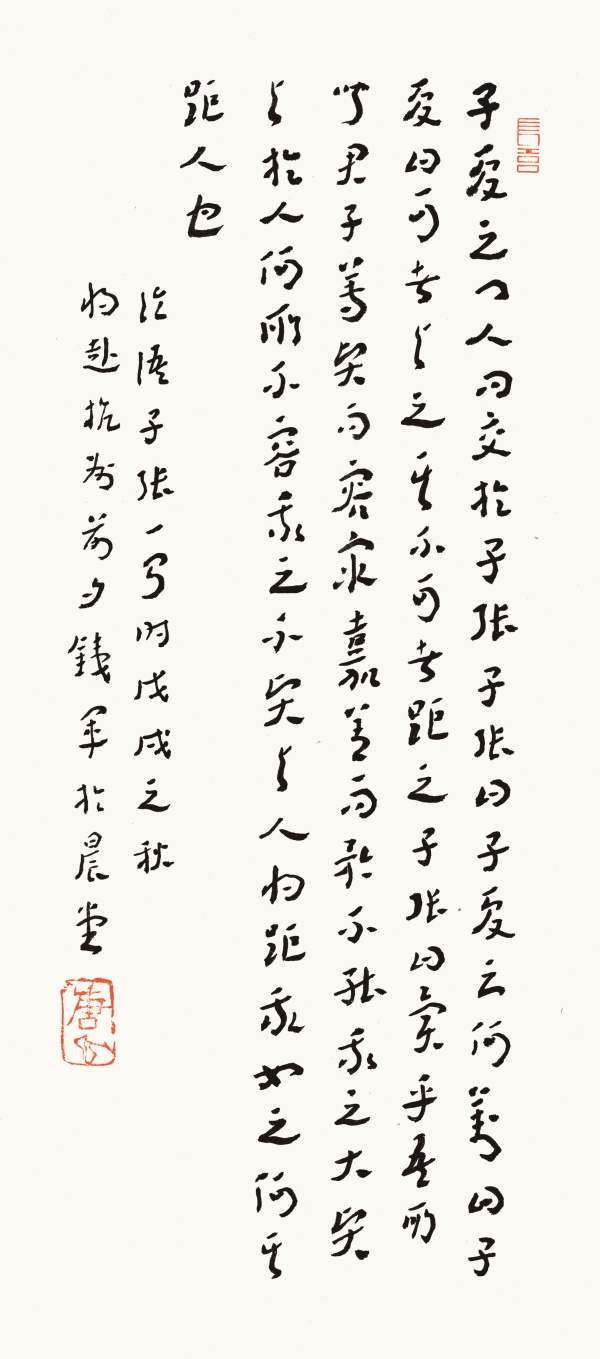 子夏之門人問交於子張子張曰子夏云何對曰子
夏曰可者与之其不可者距之子張曰異乎吾所
聞君子尊賢而容眾嘉善而矜不能我之大賢
与於人何所不容我之不賢与人將距我如之何其
距人也
論語子張一 时戊戌之秋
將赴杭州前夕錢军於晨堂
唐